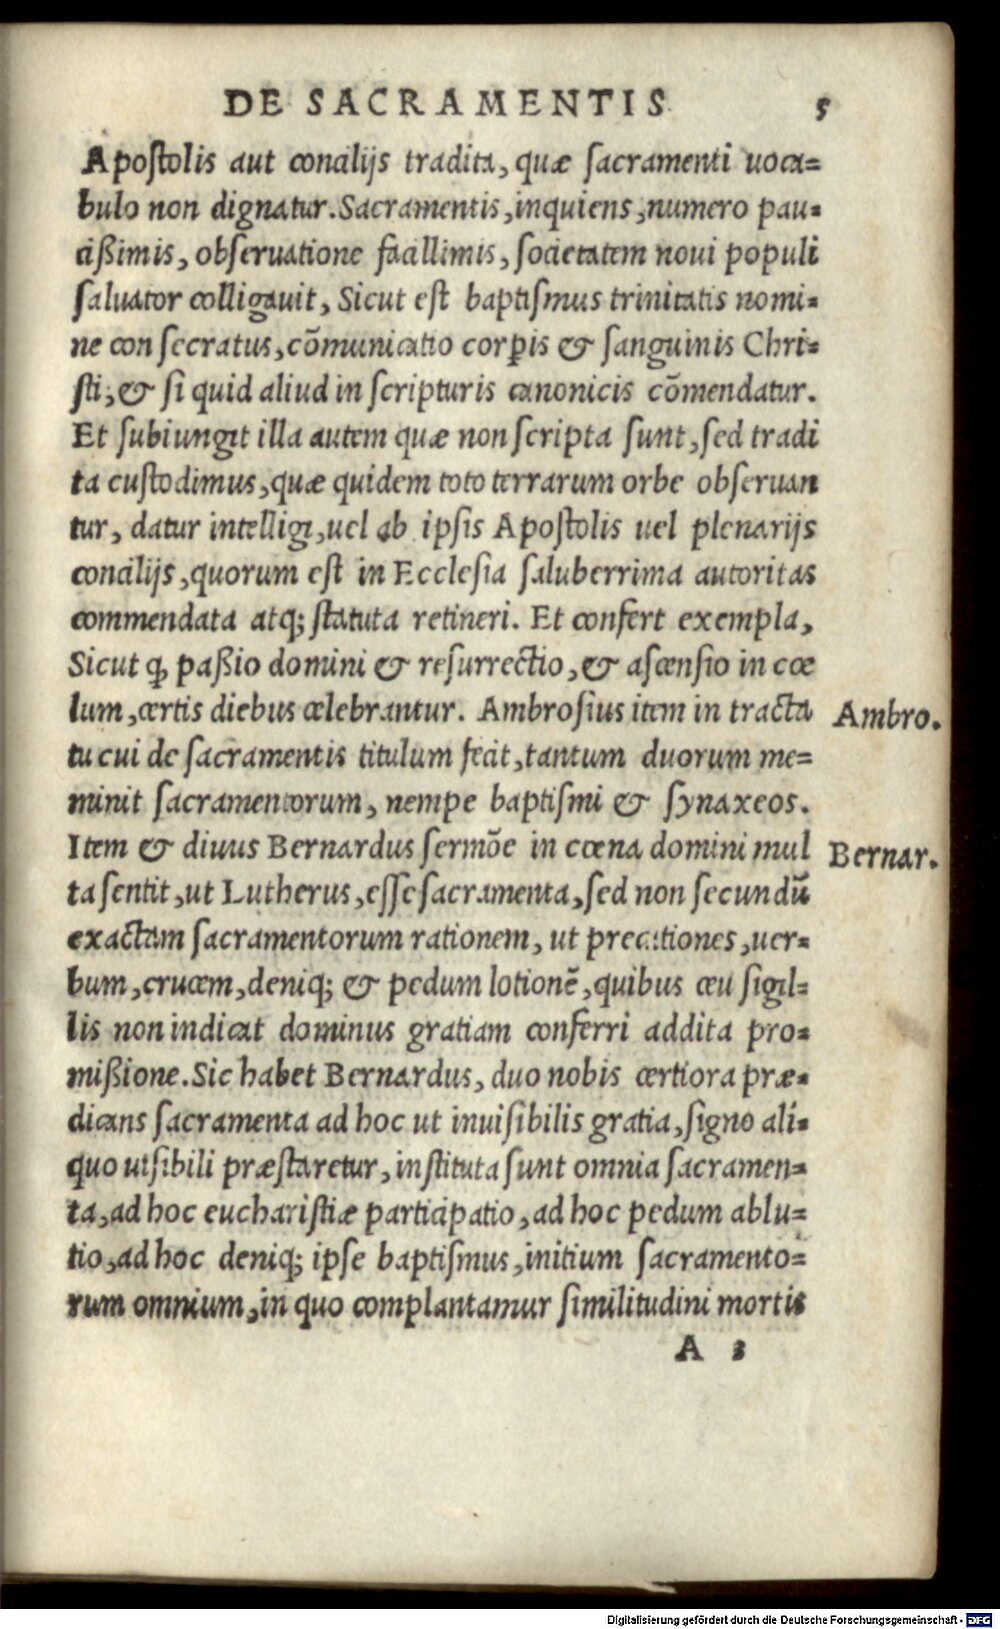 DE SACRAMENTIS 5
Apoſtolis aut concilijs tradita, quæ ſacramenti uoca=
bulo non dignatur. Sacramentis, inquiens, numero pau=
cißimis, obſeruatione facillimis, ſocietatem noui populi
ſaluator colligauit, Sicut eſt baptiſmus trinitatis nomi=
ne con ſecratus, cõmunicatio corꝑis & ſanguinis Chri=
ſti; & ſi quid aliud in ſcripturis canonicis cõmendatur.
Et ſubiungit illa autem quæ non ſcripta ſunt, ſed tradi
ta cuſtodimus, quæ quidem toto terrarum orbe obſeruan
tur, datur intelligi, uel ab ipſis Apoſtolis uel plenarijs
concilijs, quorum eſt in Eccleſia ſaluberrima autoritas
commendata atq; ſtatuta retineri. Et confert exempla,
Sicut ꝙ paßio domini & reſurrectio, & aſcenſio in cœ
lum, certis diebus celebrantur. Ambroſius item in tracta
Ambro.
tu cui de ſacramentis titulum fecit, tantum duorum me=
minit ſacramentorum, nempe baptiſmi & ſynaxeos.
Item & diuus Bernardus ſermõe in cœna domini mul
Bernar.
ta ſentit, ut Lutherus, eſſe ſacramenta, ſed non ſecundũ
exactam ſacramentorum rationem, ut precationes, uer=
bum, crucem, deniq; & pedum lotionẽ, quibus ceu ſigil=
lis non indicat dominus gratiam conferri addita pro=
mißione. Sic habet Bernardus, duo nobis certiora præ=
dicans ſacramenta ad hoc ut inuiſibilis gratia, ſigno ali=
quo uiſibili præſtaretur, inſtituta ſunt omnia ſacramen=
ta, ad hoc euchariſtiæ participatio, ad hoc pedum ablu=
tio, ad hoc deniq; ipſe baptiſmus, initium ſacramento=
rum omnium, in quo complantamur ſimilitudini mortis
A 3
Digitalisierung gefördert durch die Deutsche Forschungsgemeinschaft - DFG